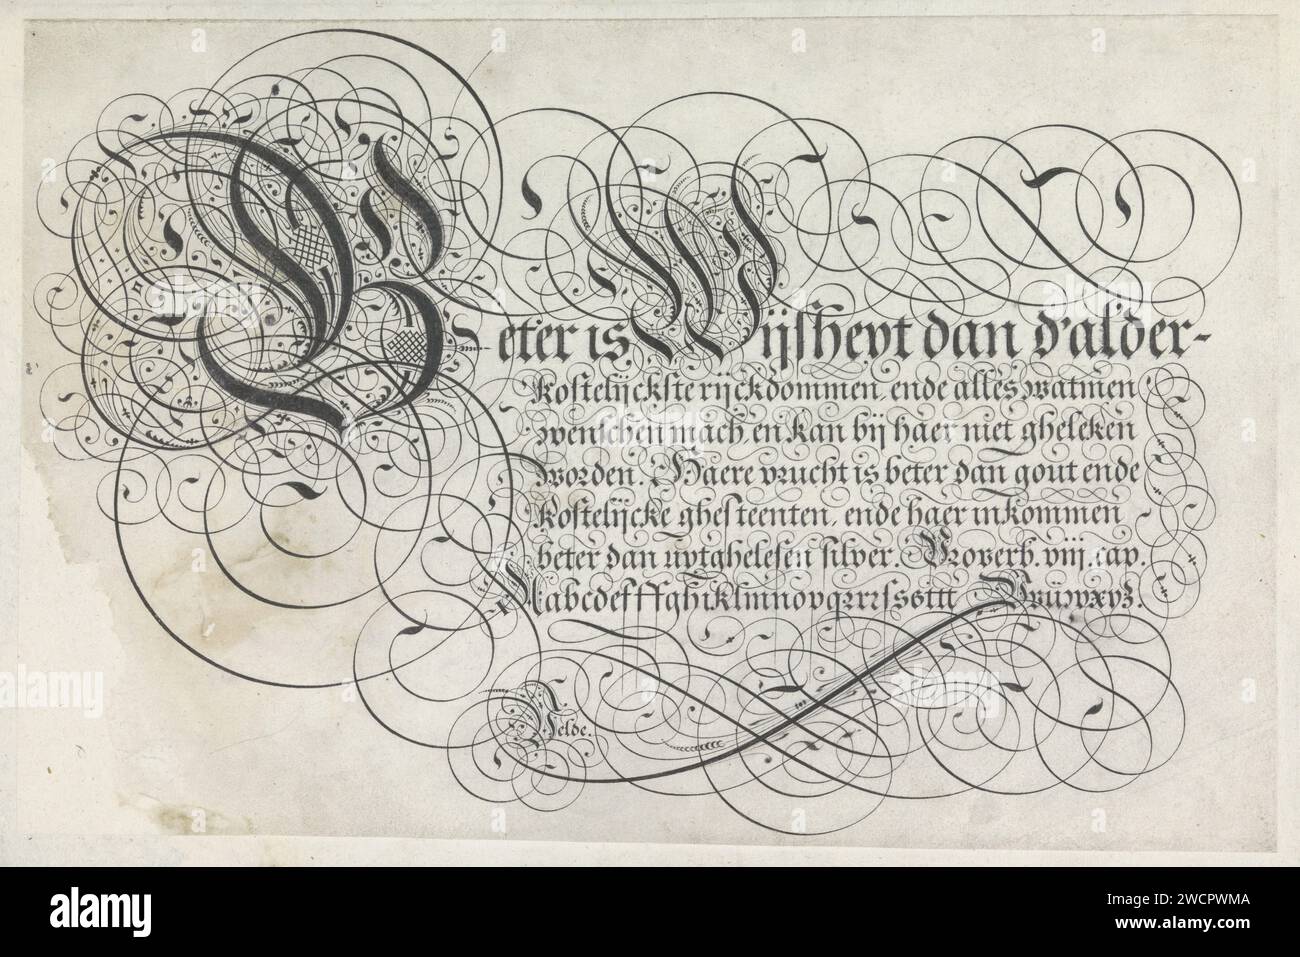 Beter is Wijsheyt dan d'alder-
kostelijckste rijckdommen, ende alles watmen
wenschen mach, en kan bij haer niet gheleken
worden. Haere vrucht is beter dan gout ende
kostelijcke ghesteenten, ende haer inkommen
beter dan uytghelesen silver. Proverb. viij. cap.
Aabcdefffghiklmnopqrrrsssttt Vvüwxyz.
Velde.
alamy
Image ID: 2WCPWMA
www.alamy.com